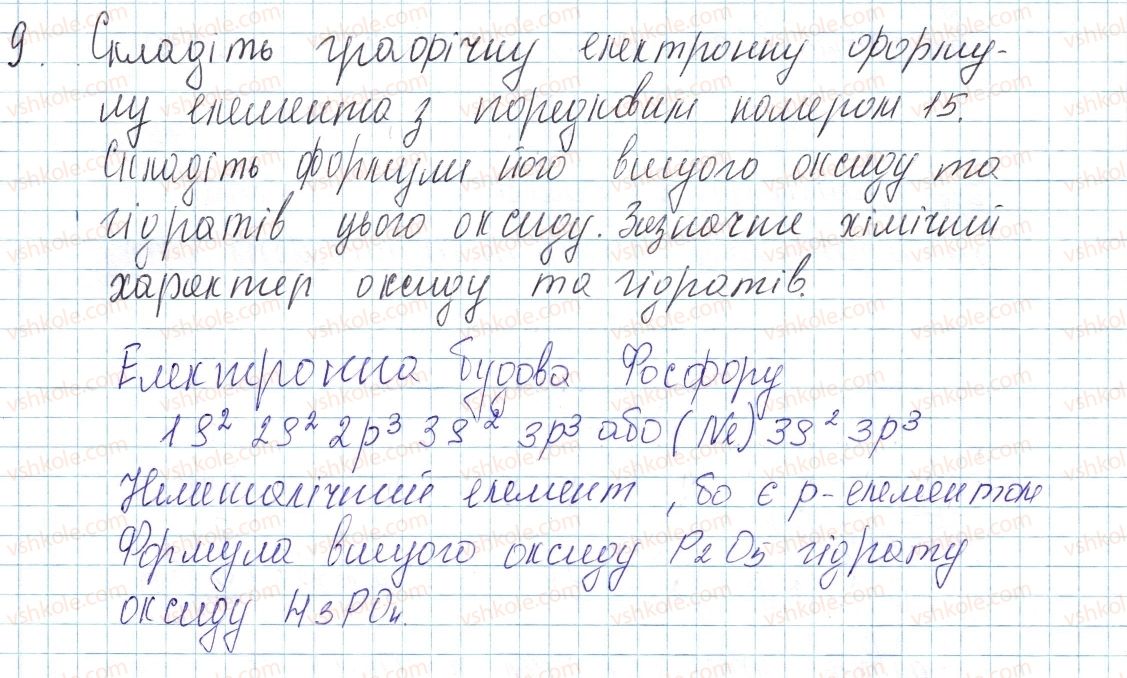 9. Складіть графічну електронну форму-
лу елемента з порядковим номером 15.
Складіть формули його вищого оксиду та
гідратів цього оксиду. Зазначте хімічний
характер оксиду та гідратів.
Електронна будова Фосфору
1s² 2s² 2p³ 3s² 3p³ або (Ne) 3s² 3p³
Неметалічний елемент, бо є p-елементом
Формула вищого оксиду P₂O₅ гідрату
оксиду H₃PO₄.